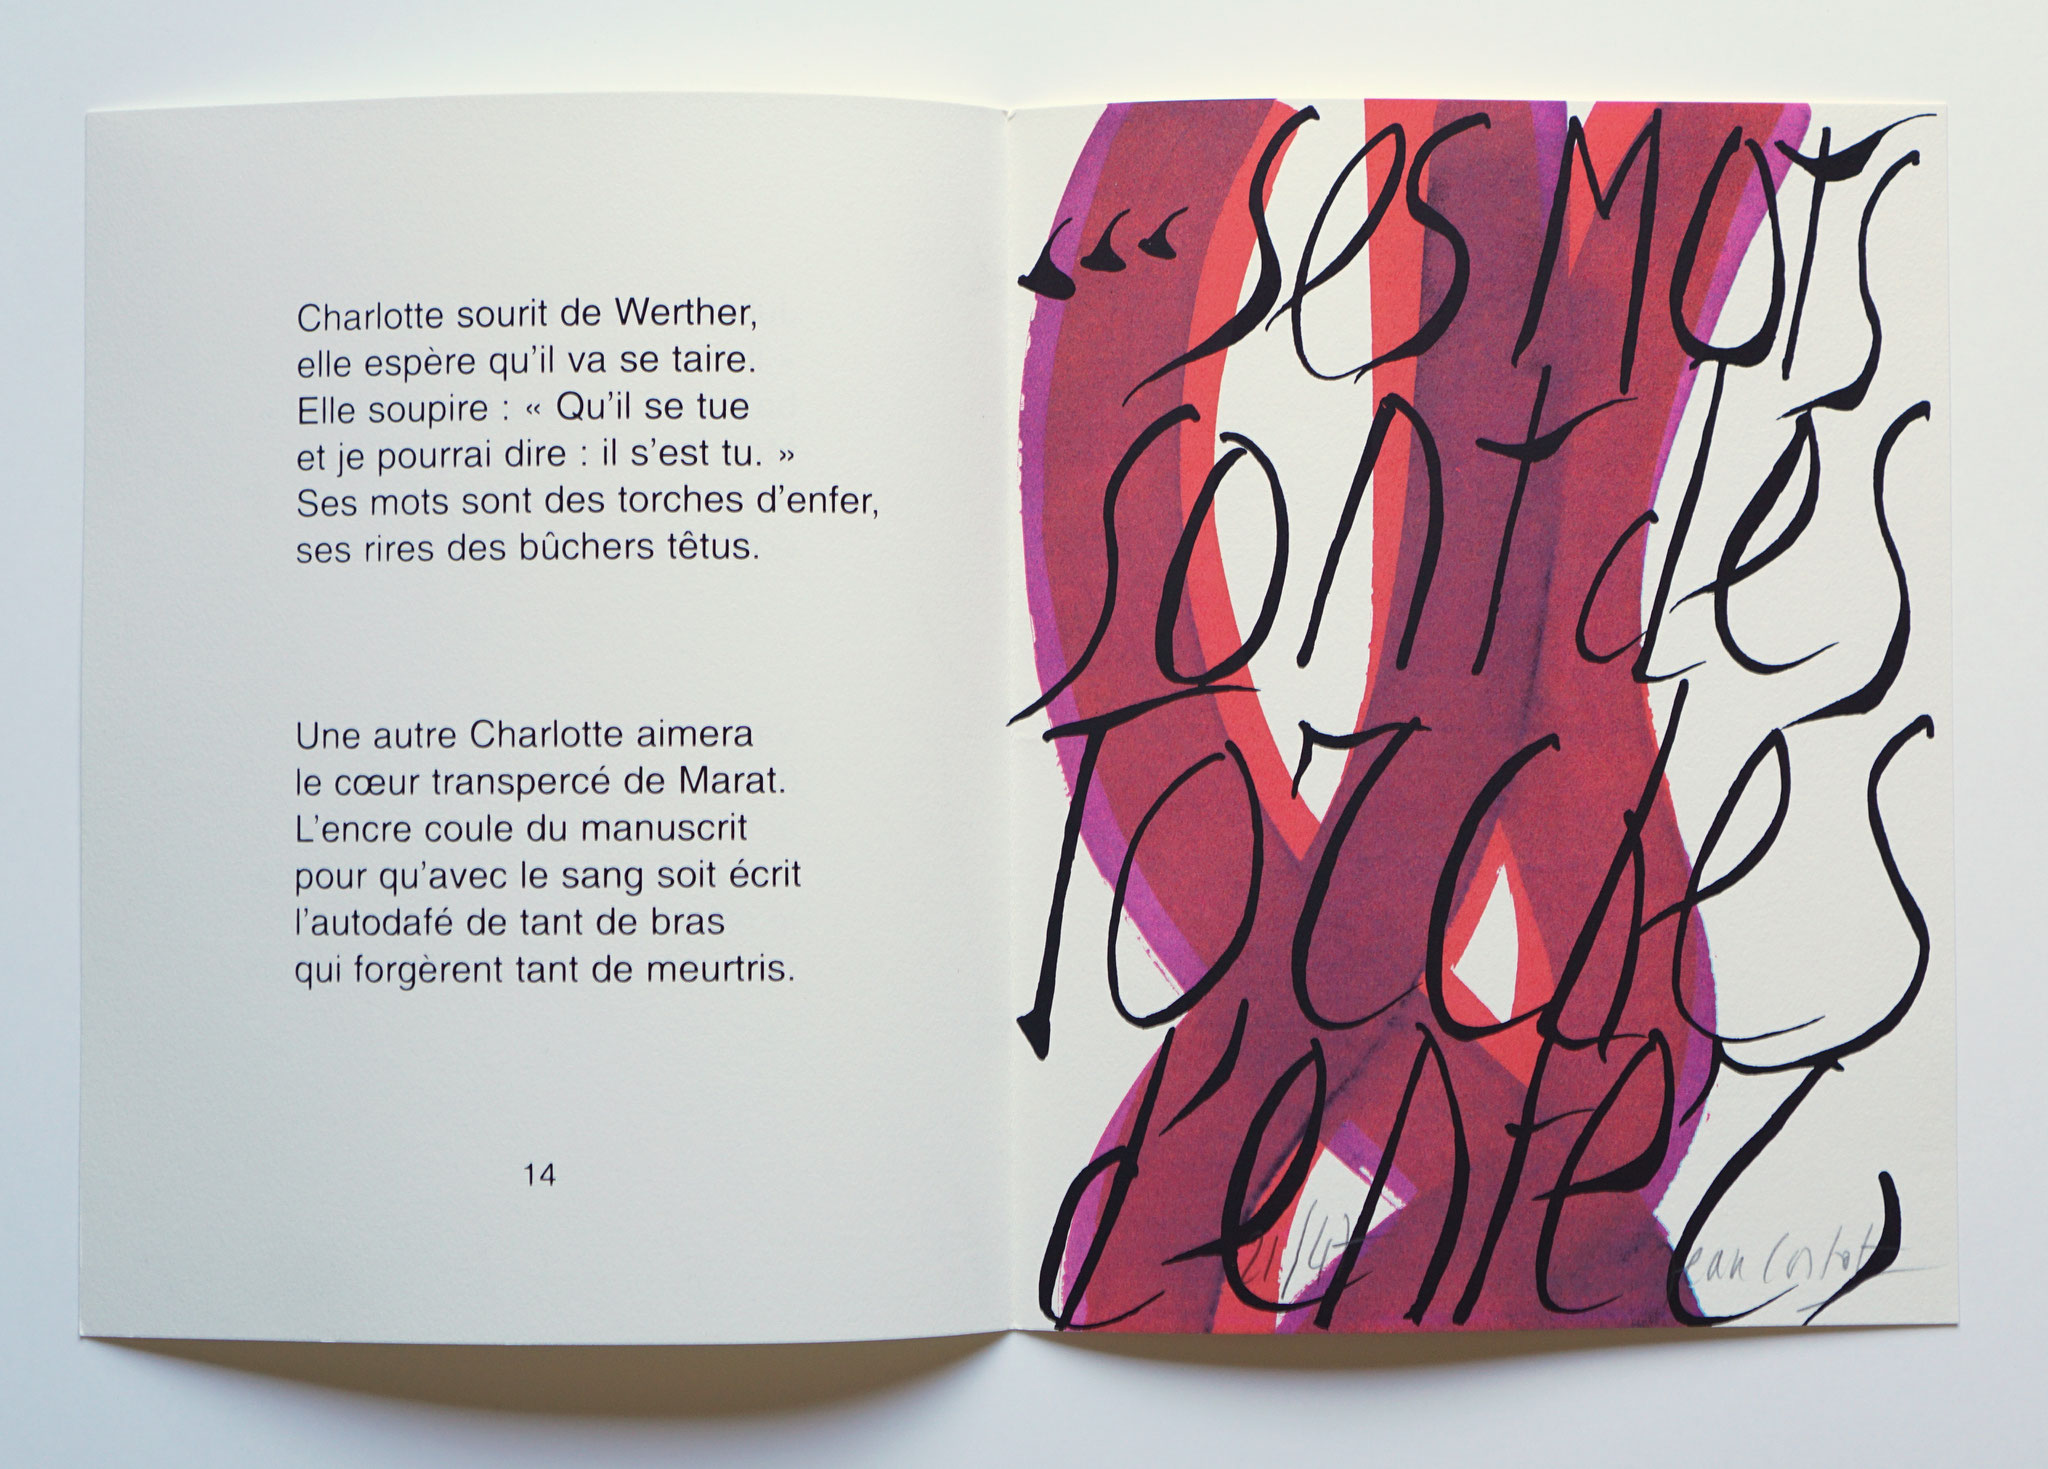 Charlotte sourit de Werther,
elle espère qu'il va se taire.
Elle soupire : « Qu'il se tue
et je pourrai dire : il s'est tu. »
Ses mots sont des torches d'enfer,
ses rires des bûchers têtus.
Une autre Charlotte aimera
le cœur transpercé de Marat.
L'encre coule du manuscrit
pour qu'avec le sang soit écrit
l'autodafé de tant de bras
qui forgèrent tant de meurtris.
14
...ses mots
sont des
Torches
d'enfer,
21/47
Jean Cortot